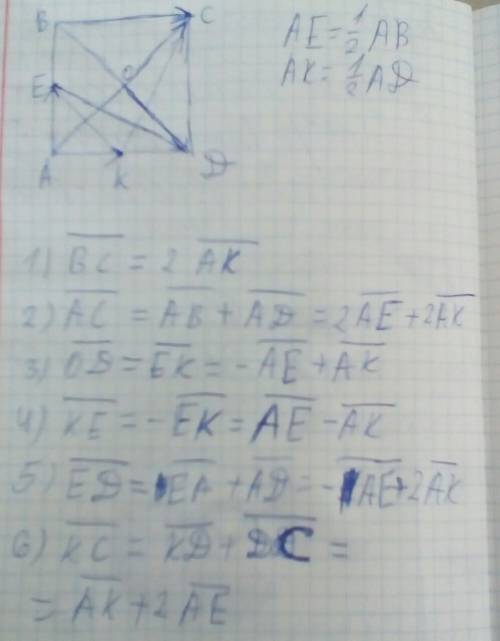 B C
AE = 1/2 AB
E O
AK = 1/2 AD
A K D
1) B͞C͞ = 2 A͞K͞
2) A͞C͞ = A͞B͞ + A͞D͞ = 2A͞E͞ + 2A͞K͞
3) O͞D͞ = E͞K͞ = -A͞E͞ + A͞K͞
4) K͞E͞ = -E͞K͞ = A͞E͞ - A͞K͞
5) E͞D͞ = E͞A͞ + A͞D͞ = -A͞E͞ + 2A͞K͞
6) K͞C͞ = K͞D͞ + D͞C͞ =
= A͞K͞ + 2A͞E͞